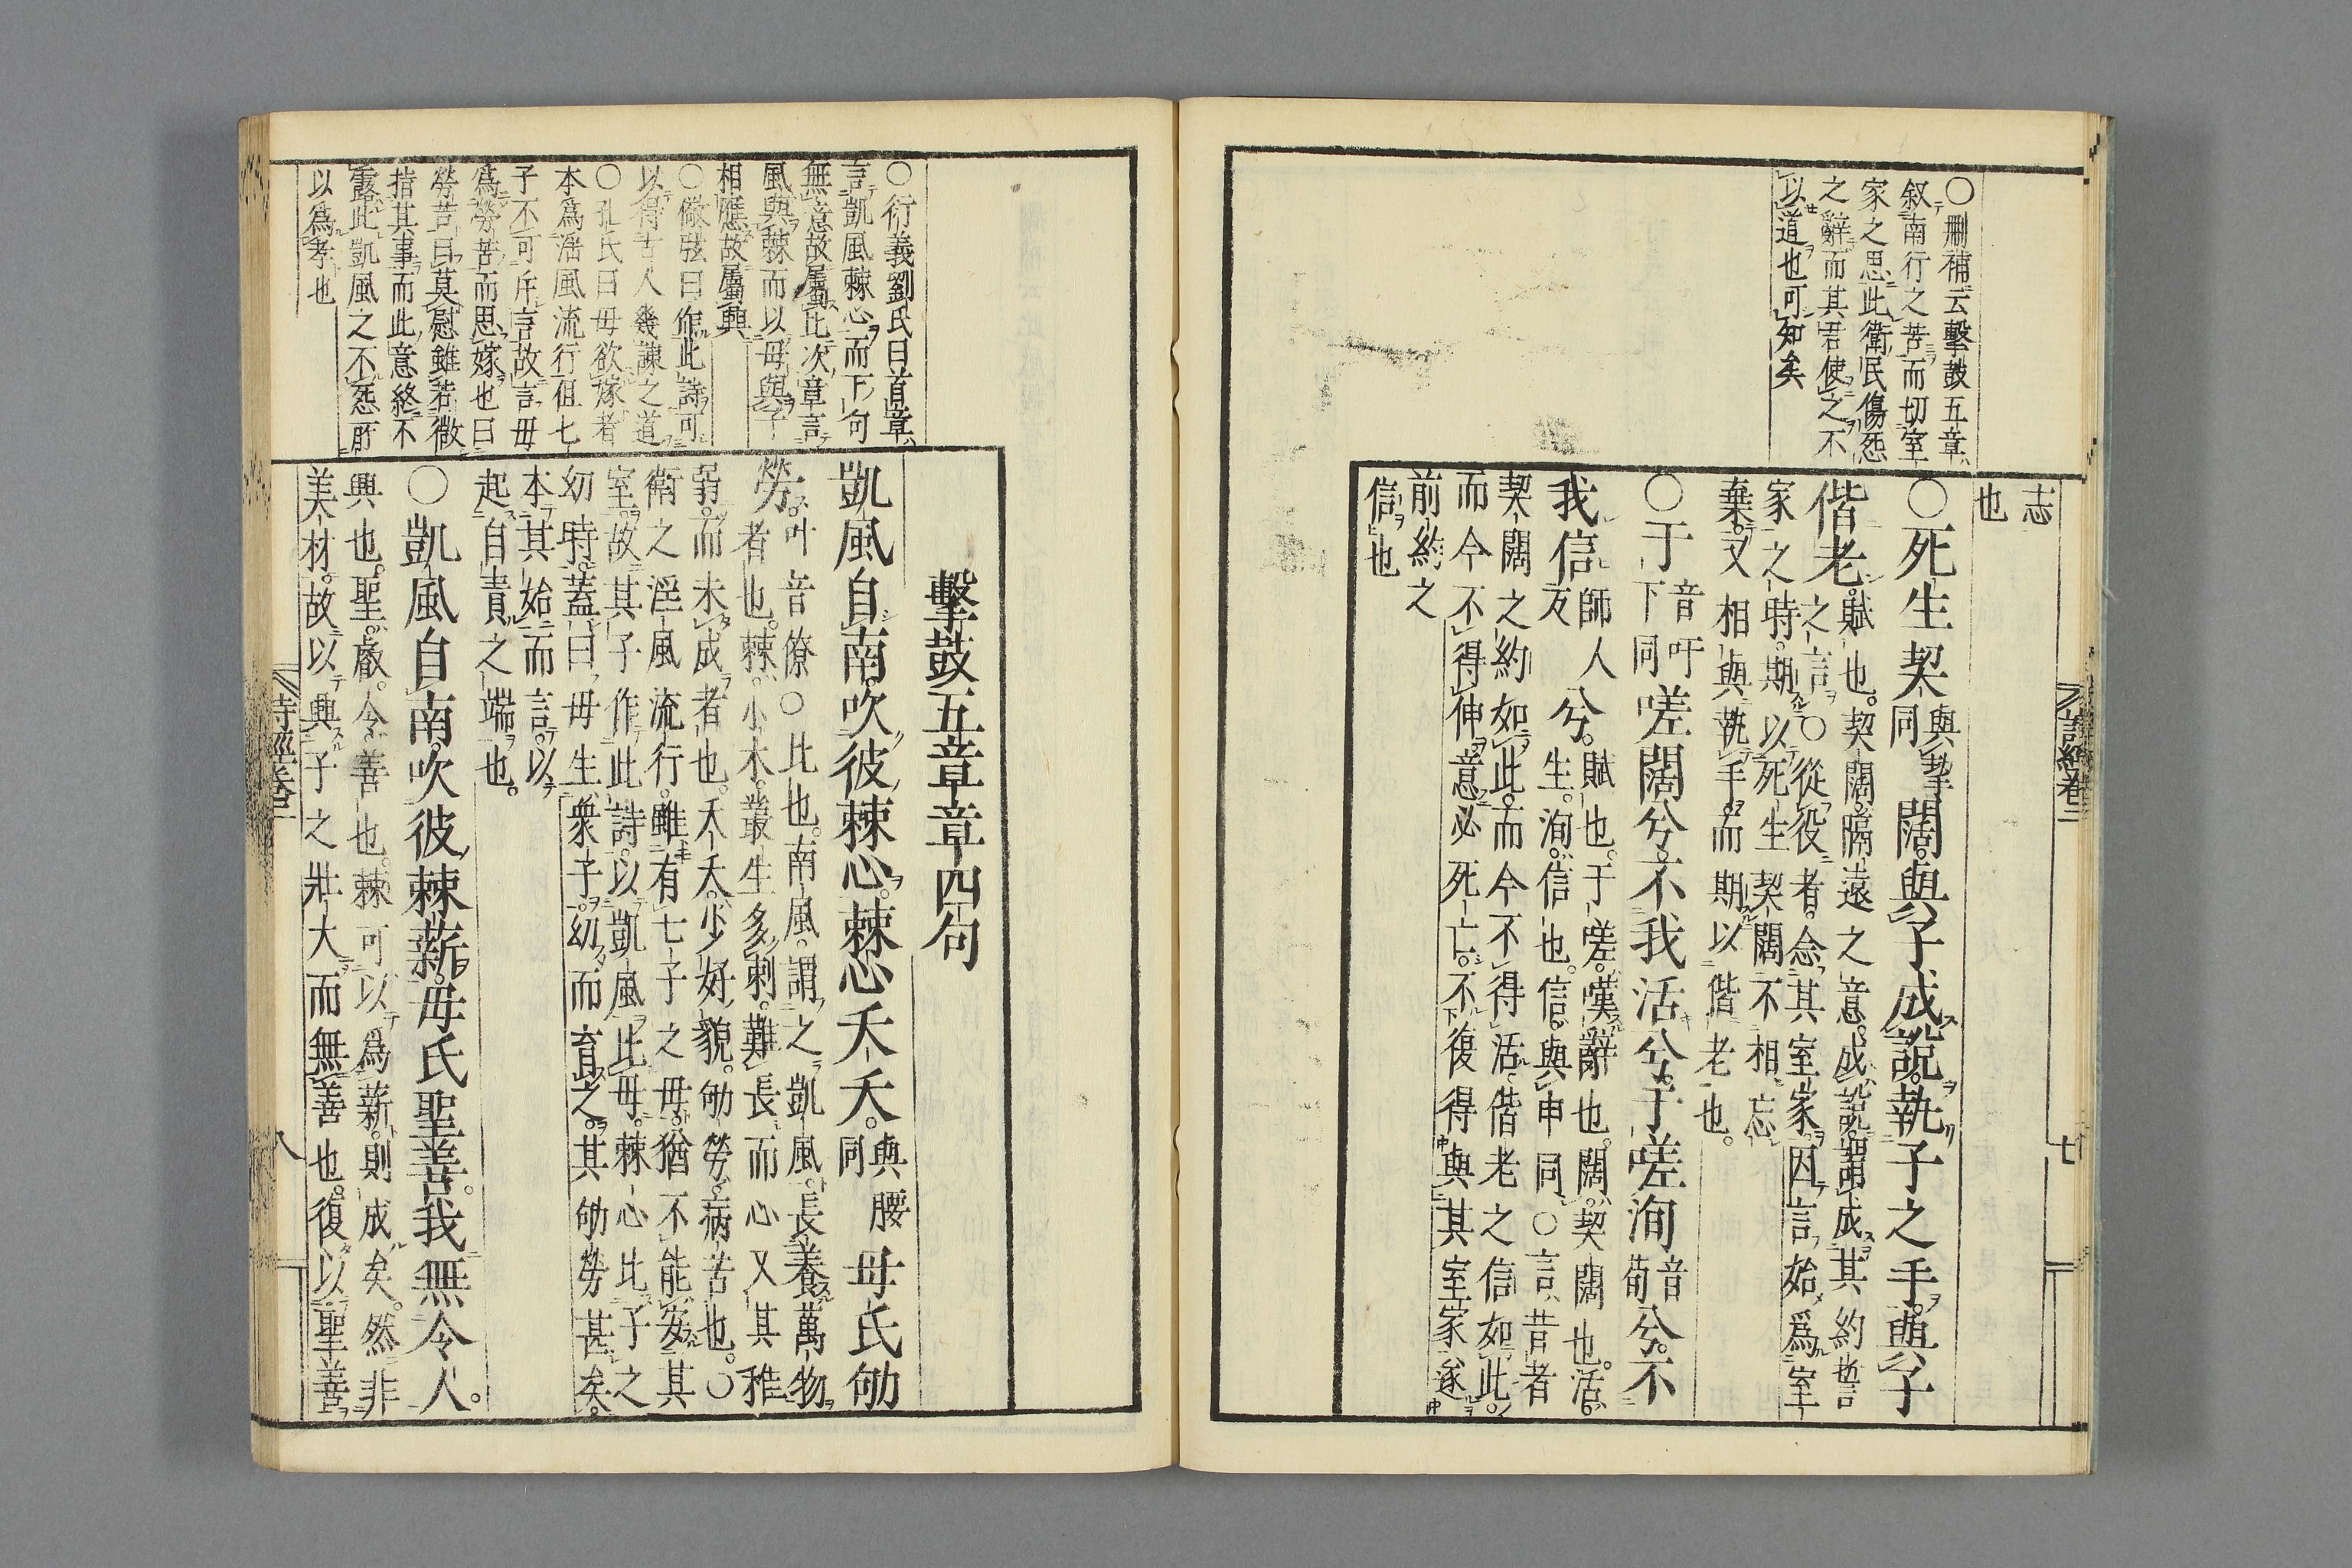 ○刪補云擊鼓五章
叙南行之苦而切室
家之思此衛民傷怨
之辭而其君使之不
以道也可知矣
志
也
○死生契與挈同闊與子成說執子之手與子
偕老賦也契闊隔遠之意成說謂成其約誓
之言○從役者念其室家因言始爲室
家之時期以死生契闊不相忘
棄又相與執手而期以偕老也
○于音吁下同嗟闊兮不我活兮于嗟洵音荀兮不
我信師人反兮賦也于嗟嘆辭也闊契闊也活
生洵信也信與申同○言昔者
契闊之約如此而今不得活偕老之信如此
而今不得伸意必死亡不復得與其室家遂
前約之
信也
詩經卷二
七
○衍義劉氏曰首章
言凱風棘心而下句
無意故屬比次章言
風與棘而以母與子
相應故屬興
○儆弦曰作此詩可
以得古人幾諫之道
○孔氏曰母欲嫁者
本爲滛風流行但七
子不可斥言故言母
爲勞苦而思嫁也曰
勞苦曰莫慰雖若微
指其事而此意終不
露此凱風之不怨所
以爲孝也
擊鼓五章章四句
凱風自南吹彼棘心棘心夭夭與腰同母氏劬
勞叶音僚○比也南風謂之凱風長養萬物
者也棘小木叢生多刺難長而心又其稚
弱而未成者也夭夭少好貌劬勞病苦也○
衛之淫風流行雖有七子之母猶不能安其
室故其子作此詩以凱風比母棘心比子之
幼時蓋曰母生衆子幼而育之其劬勞甚矣
本其始而言以
起自責之端也
○凱風自南吹彼棘薪母氏聖善我無令人
興也聖叡令善也棘可以爲薪則成矣然非
美材故以興子之壯大而無善也復以聖善
詩經卷二
八